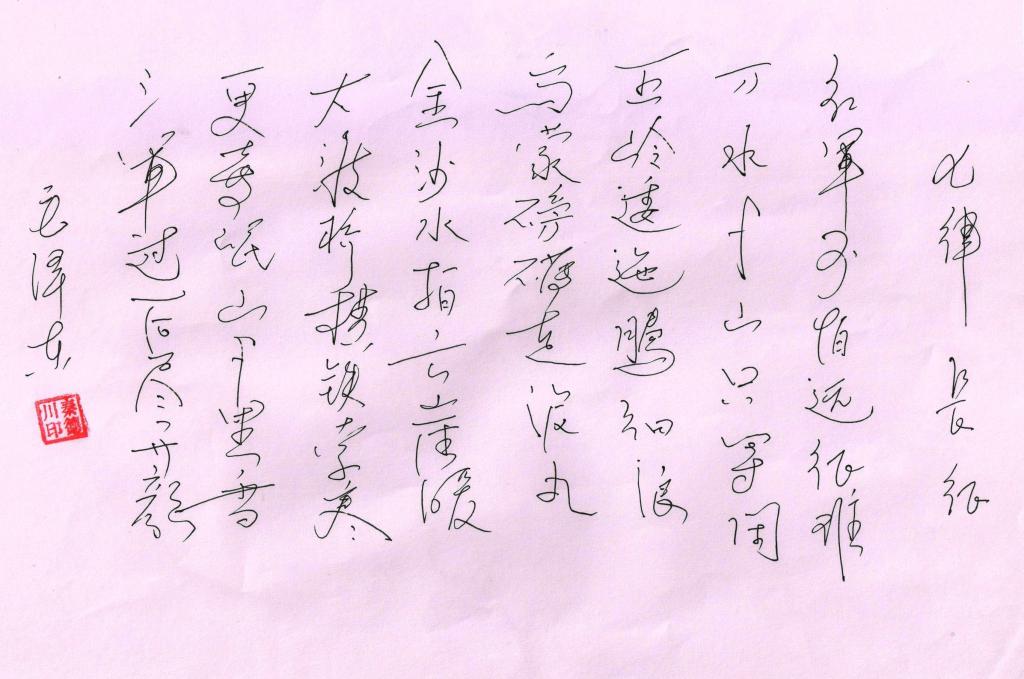 七律 長征
红军不怕远征难
万水千山只等闲
五岭逶迤腾细浪
乌蒙磅礴走泥丸
金沙水拍云崖暖
大渡桥横铁索寒
更喜岷山千里雪
三军过后尽开颜
毛泽东
川印